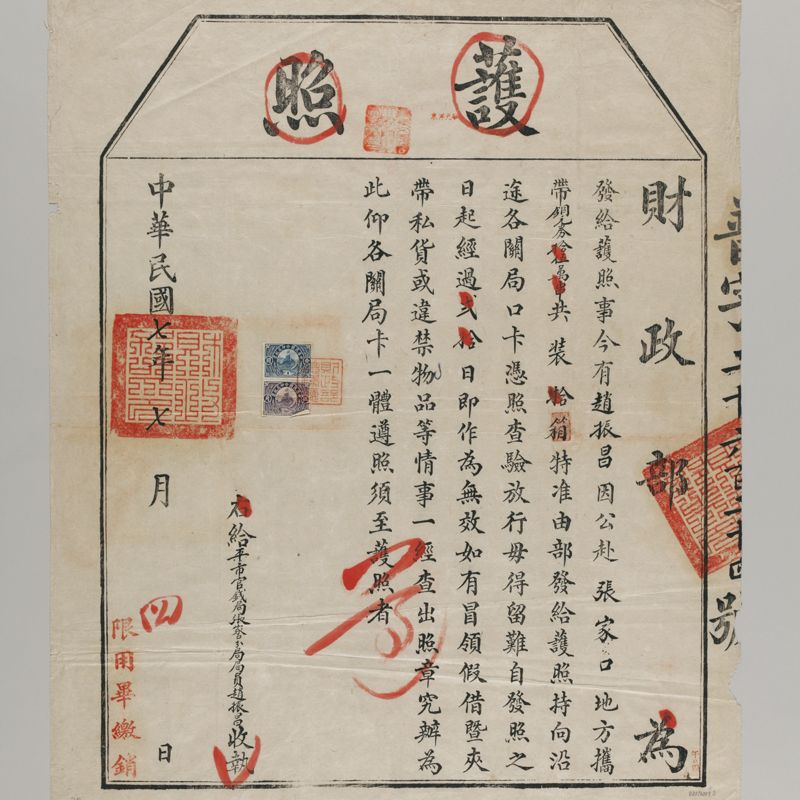 護照
財政部 為
發給護照事今有趙振昌因公赴張家口地方攜
帶銅券拾伍萬串共裝拾箱特准由部發給護照持向沿
途各關局口卡憑照查驗放行毋得留難自發照之
日起經過貳拾日即作為無效如有冒領假借暨夾
帶私貨或違禁物品等情事一經查出照章究辦為
此仰各關局卡一體遵照須至護照者
右給平市官錢局張家口局局員趙振昌收執
中華民國七年七月四日
限用畢繳銷